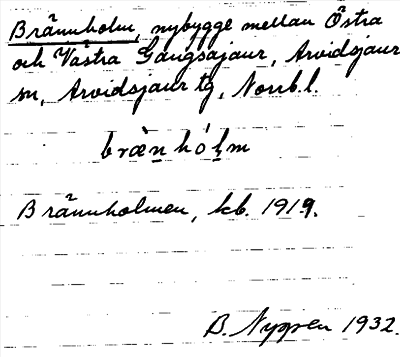 Brännholm, nybygge mellan Östra
och Västra Gaugsajaur, Arvidsjaur
sn, Arvidsjaur tg, Norrb. l.
bræ̀nhólm
Brännholmen, kb. 1919.
B. Nygren 1932.